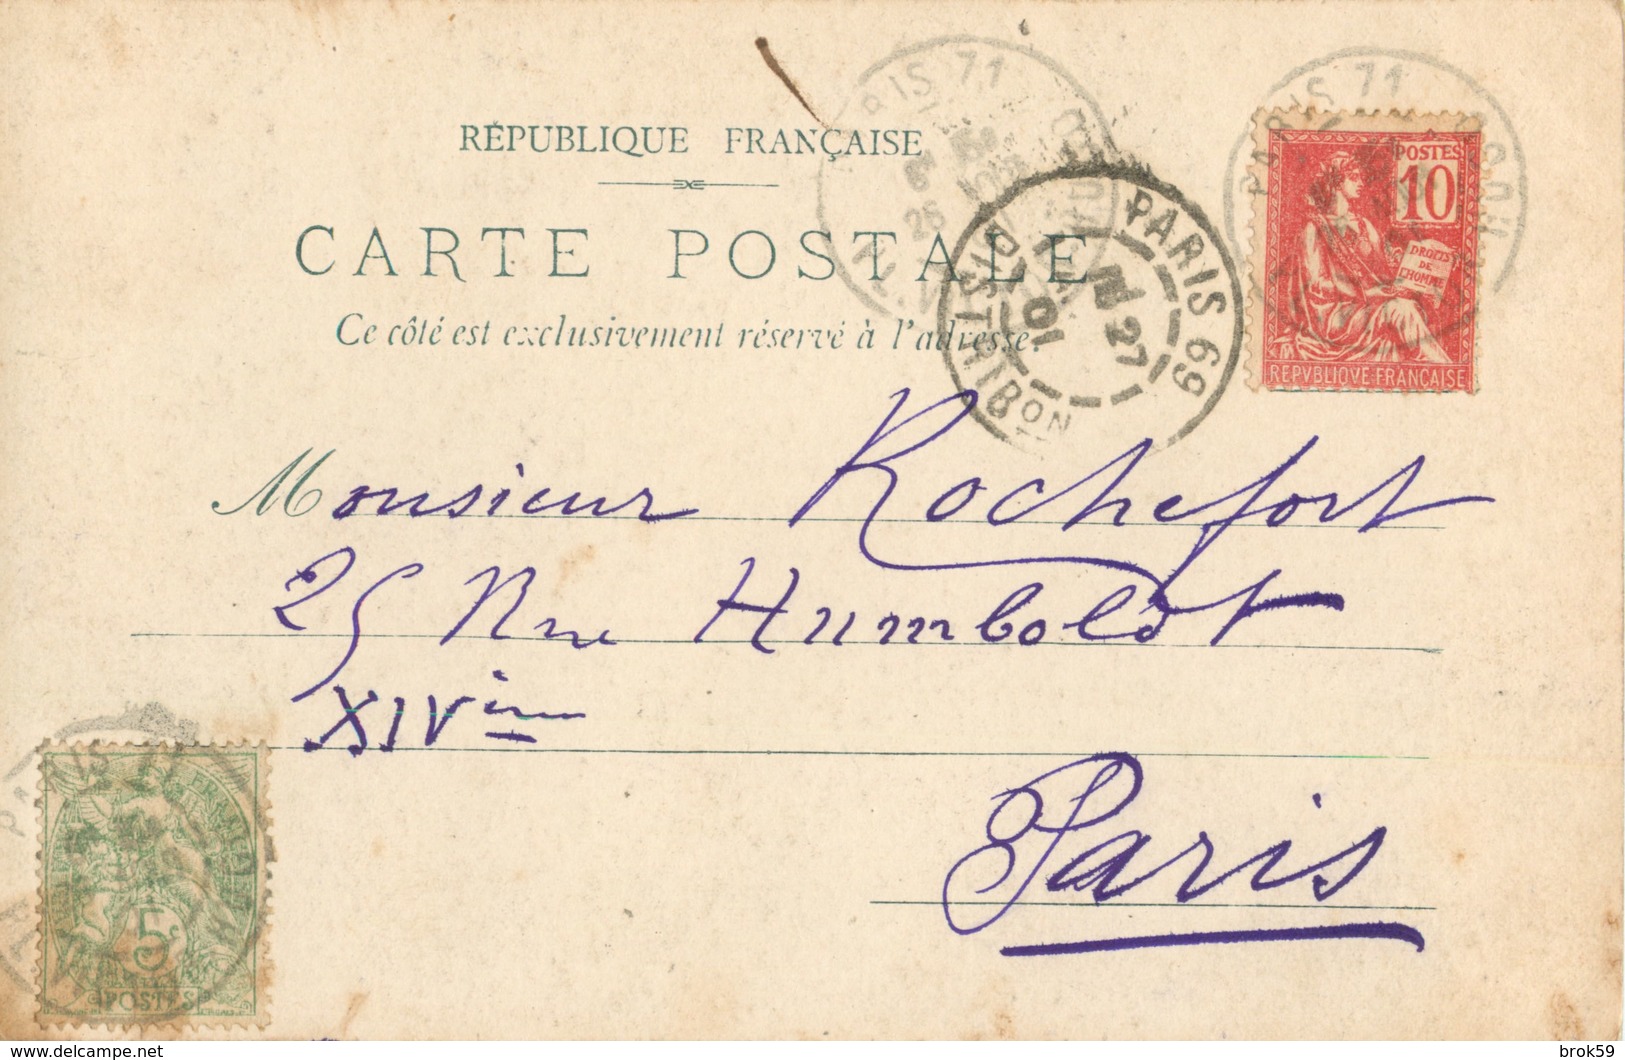 RÉPUBLIQUE FRANÇAISE
CARTE POSTALE
Ce côté est exclusivement réservé à l'adresse.
PARIS 71
PARIS 71
PARIS 69
DISTRIBON
27
01
POSTES
10
DROITS
DE
L'HOMME
REPVBLIQVE FRANÇAISE
Monsieur Rochefort
25 Rue Humboldt
XIVème
Paris
PARIS
5c
POSTES
delcampe.net
brok59